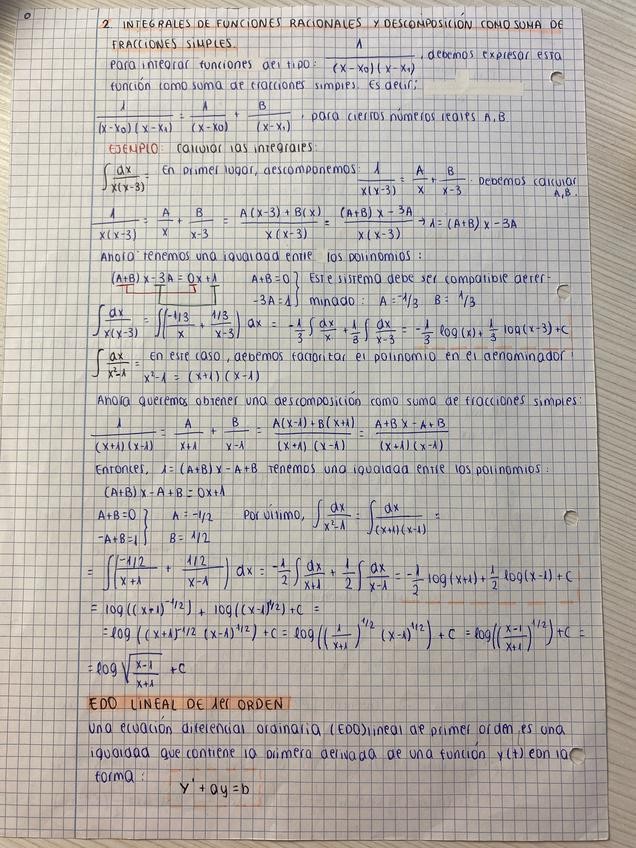 2. INTEGRALES DE FUNCIONES RACIONALES Y DESCOMPOSICIÓN COMO SUMA DE
FRACCIONES SIMPLES.
Para integrar funciones del tipo: 1/((x-x0)(x-x1)), debemos expresar esta
función como suma de fracciones simples. Es decir:
1/((x-x0)(x-x1)) = A/(x-x0) + B/(x-x1), para ciertos números reales A, B.
EJEMPLO: Calcular las integrales:
∫ dx/(x(x-3)) = En primer lugar, descomponemos: 1/(x(x-3)) = A/x + B/(x-3). Debemos calcular A, B.
1/(x(x-3)) = A/x + B/(x-3) = (A(x-3)+B(x))/(x(x-3)) = ((A+B)x-3A)/(x(x-3)) → 1=(A+B)x-3A
Ahora tenemos una igualdad entre los polinomios:
(A+B)x-3A=0x+1 A+B=0 } Este sistema debe ser compatible deter-
-3A=1 } minado: A=-1/3 B=1/3
∫ dx/(x(x-3)) = ∫((-1/3)/x + (1/3)/(x-3)) dx = -1/3 ∫ dx/x + 1/3 ∫ dx/(x-3) = -1/3 log(x) + 1/3 log(x-3)+C
∫ dx/(x²-1) = En este caso, debemos factorizar el polinomio en el denominador:
x²-1=(x+1)(x-1)
Ahora queremos obtener una descomposición como suma de fracciones simples:
1/((x+1)(x-1)) = A/(x+1) + B/(x-1) = (A(x-1)+B(x+1))/((x+1)(x-1)) = (A+Bx-A+B)/((x+1)(x-1))
Entonces, 1=(A+B)x-A+B Tenemos una igualdad entre los polinomios:
(A+B)x-A+B=0x+1
A+B=0 } A=-1/2 Por último, ∫ dx/(x²-1) = ∫ dx/((x+1)(x-1)) =
-A+B=1 } B=1/2
= ∫((-1/2)/(x+1) + (1/2)/(x-1)) dx = -1/2 ∫ dx/(x+1) + 1/2 ∫ dx/(x-1) = -1/2 log(x+1) + 1/2 log(x-1)+C
= log((x+1)^-1/2) + log((x-1)^1/2)+C =
= log((x+1)^-1/2 (x-1)^1/2)+C = log((1/(x+1))^1/2 (x-1)^1/2)+C = log(((x-1)/(x+1))^1/2)+C =
= log √((x-1)/(x+1)) +C
EDO LINEAL DE 1er ORDEN
Una ecuación diferencial ordinaria (EDO) lineal de primer orden es una
igualdad que contiene la primera derivada de una función y(t) con la
forma:
y'+ay=b